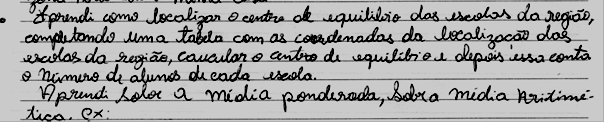 • Aprendi como localizar o centro de equilibrio das escolas da região,
completando uma tabela com as coordenadas da localização das
escolas da região, caucular o centro de equilíbrio e depois essa conta
o número de alunos de cada escola.
Aprendi sobre a média ponderada, sobra média Aritimé-
tica. Ex: